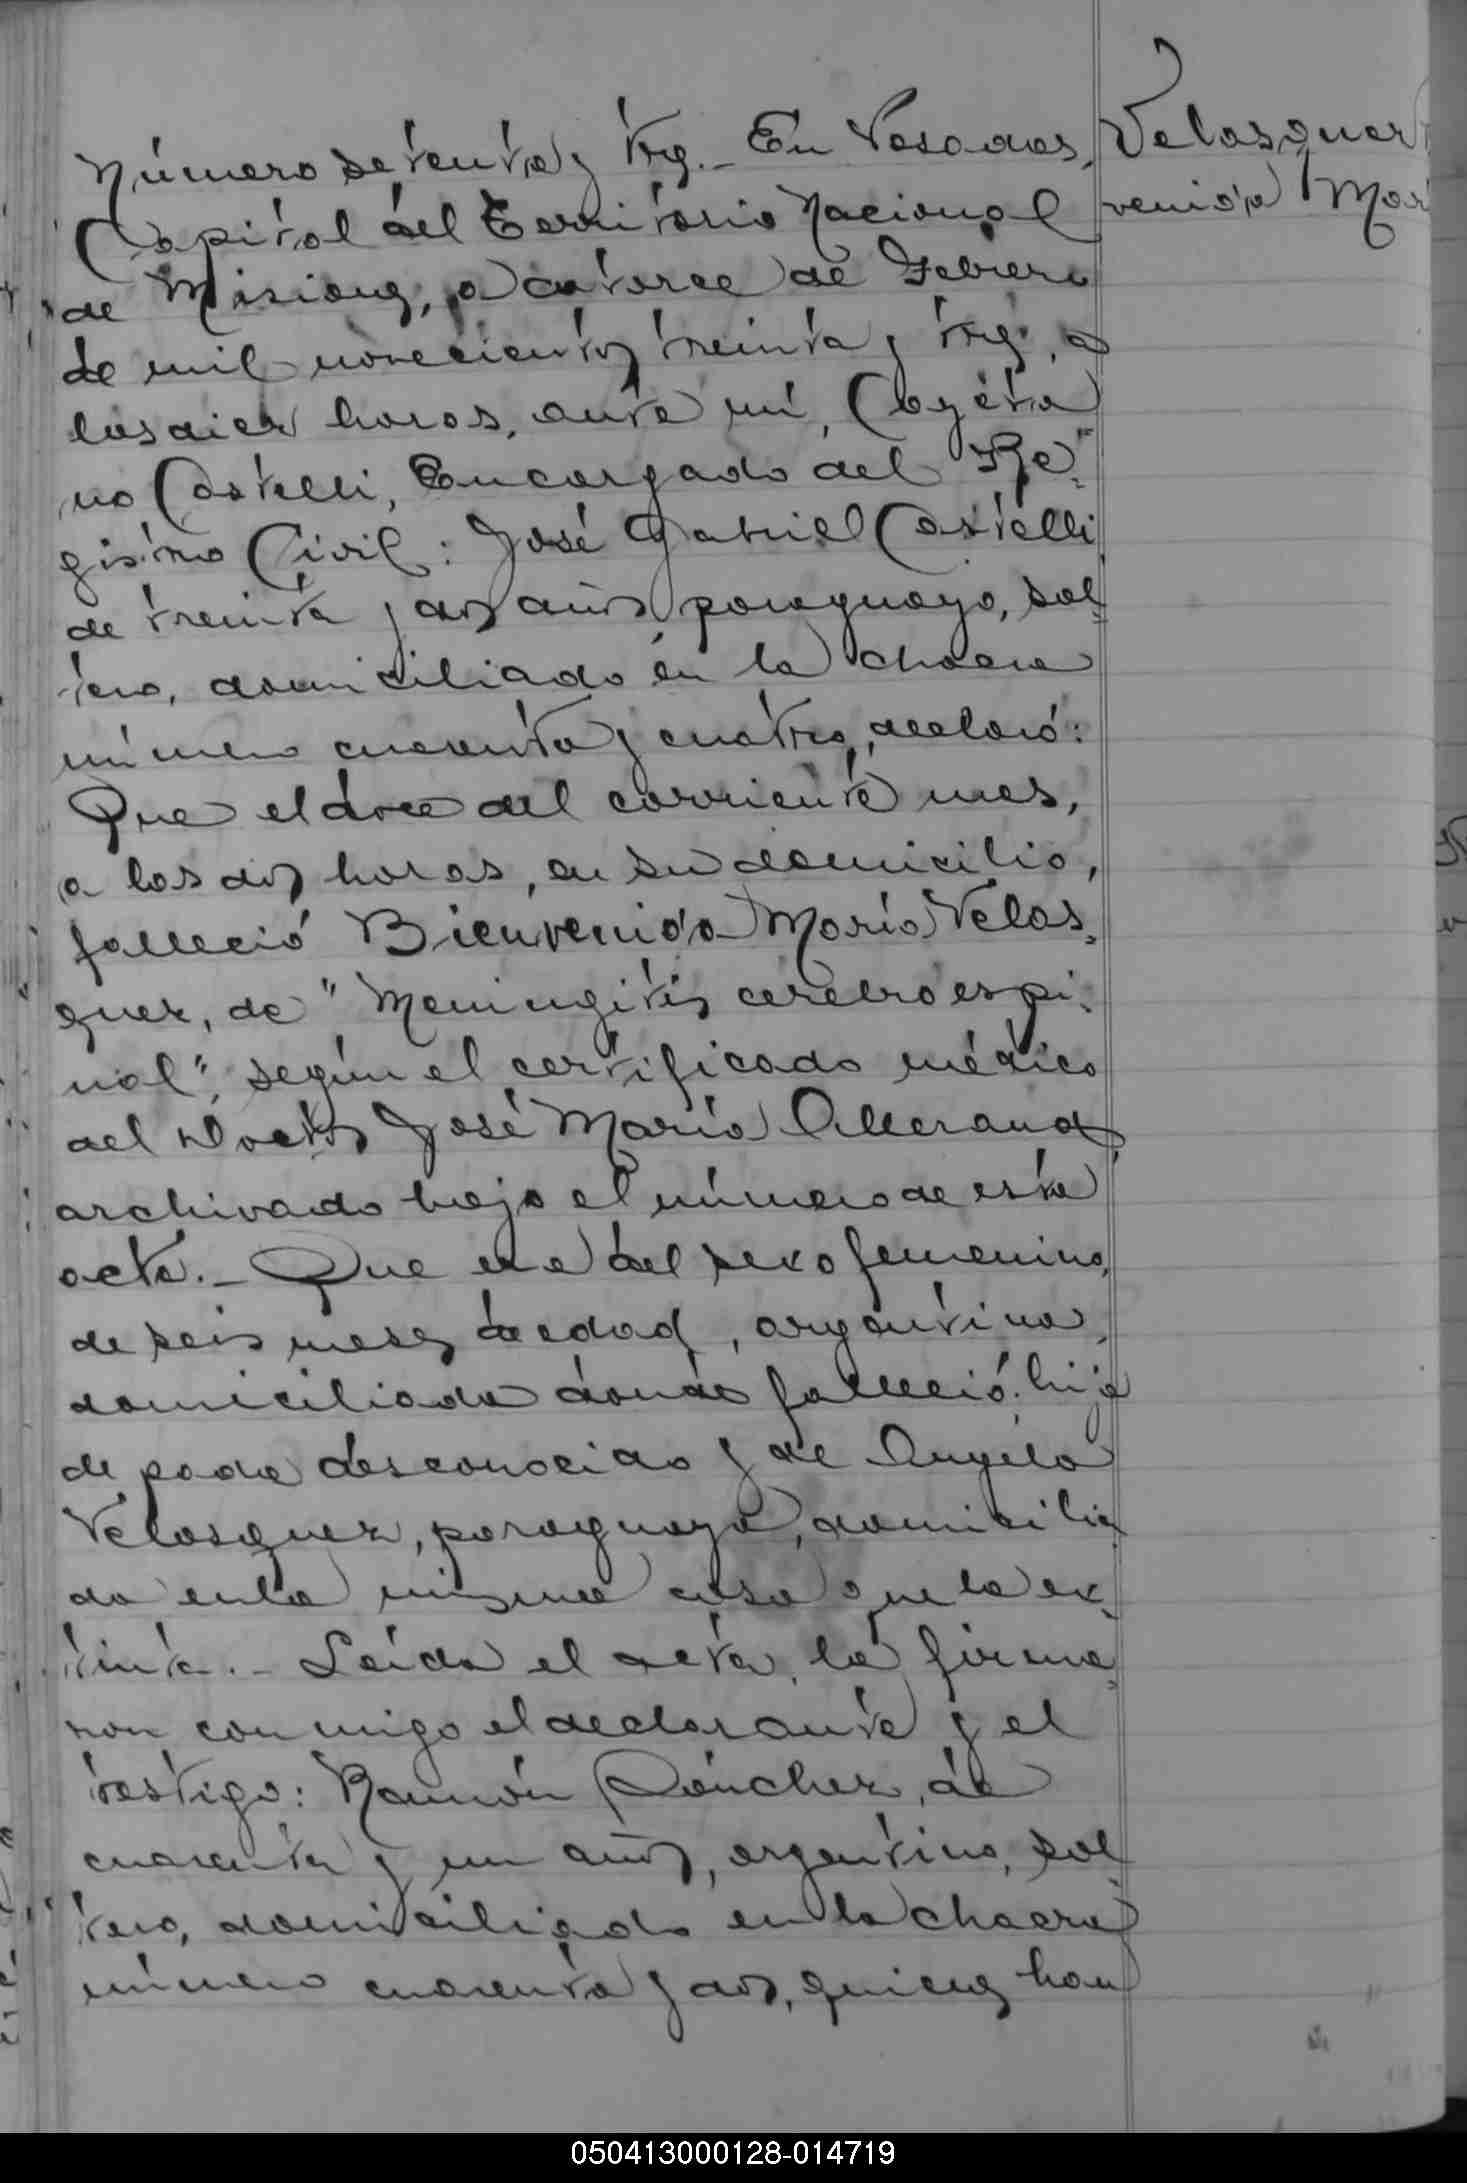 Número setenta y tres.- En Posadas,
Capital del Territorio Nacional
de Misiones, a catorce de Febrero
de mil novecientos treinta y tres, a
las diez horas, ante mí, Cayeta
no Castelli, Encargado del Re-
gistro Civil: José Gabriel Castelli
de treinta y dos años, paraguayo, sol-
tero, domiciliado en la chacra
número cuarenta y cuatro, declaró:
Que el doce del corriente mes,
a las dos horas, en su domicilio,
falleció Bienvenida María Velas-
quez, de "Meningitis cerebro espi-
nal", según el certificado médico
del Doctor José María
archivado bajo el número de esta
acta.- Que era del sexo femenino,
de seis meses de edad, argentina,
domiciliada donde falleció, hija
de padre desconocido y de Angela
Velasquez, paraguaya, domicilia
da en la misma casa que la ex-
tinta.- Leída el acta, la firma-
ron conmigo el declarante y el
testigo: Ramón Sánchez, de
cuarenta y un años, argentino, sol
tero, domiciliado en la chacra
número cuarenta y dos, quienes han
Velasquez
venida Mar
050413000128-014719